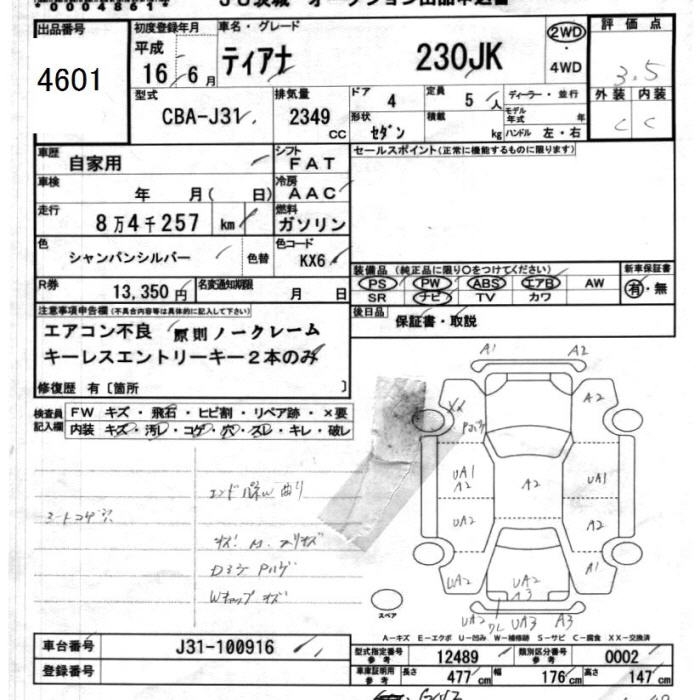 0004814
出品番号
4601
初度登録年月
平成
16年 6月
車名・グレード
ティアナ 230JK
2WD
・
4WD
評価点
3.5
型式
CBA-J31
排気量
2349
CC
ドア 4
定員 5人
形状 セダン
積載 kg
ディーラー・並行
モデル年式 年
ハンドル 左・右
外装 内装
C C
車歴 自家用
シフト FAT
セールスポイント(正常に機能するものに限ります)
車検 年 月( 日)
冷房 AAC
走行 8万4千257 km
燃料 ガソリン
色 シャンパンシルバー 色替
色コード KX6
装備品 (純正品に限り〇をつけてください)
新車保証書
PS PW ABS エアB AW
SR ナビ TV カワ
有・無
R券 13,350円
名変通知期限 月 日
後日品 保証書・取説
注意事項申告欄(不具合内容等は具体的に記入して下さい)
エアコン不良 原則ノークレーム
キーレスエントリーキー2本のみ
修復歴 有〔箇所 〕
検査員記入欄
FW キズ・飛石・ヒビ割・リペア跡・×要
内装 キズ・汚レ・コゲ・穴・スレ・キレ・破レ
A1 A2
XX A2
UA1 A2 A2 UA1
UA2 A2
UA2 UA2 A1
A3
UA2 UA3 A3
スペア
A-キズ E-エクボ U-凹み W-補修跡 S-サビ C-腐食 XX-交換済
車台番号 J31-100916
登録番号
型式指定番号 参考 12489
類別区分番号 参考 0002
車庫証明用 参考 長さ 477cm 幅 176cm 高さ 147cm